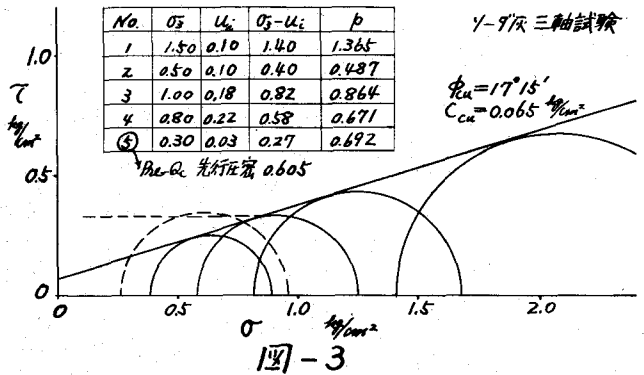 No. σ₃ uᵢ σ₃-uᵢ p
1 1.50 0.10 1.40 1.365
2 0.50 0.10 0.40 0.487
3 1.00 0.18 0.82 0.864
4 0.80 0.22 0.58 0.671
⑤ 0.30 0.03 0.27 0.692
Pre-Qc 先行圧密 0.605
ソーダ灰 三軸試験
φcu=17°15′
Ccu=0.065 kg/cm²
τ
kg/cm²
1.0
0.5
0
0 0.5 1.0 1.5 2.0
σ kg/cm²
図-3